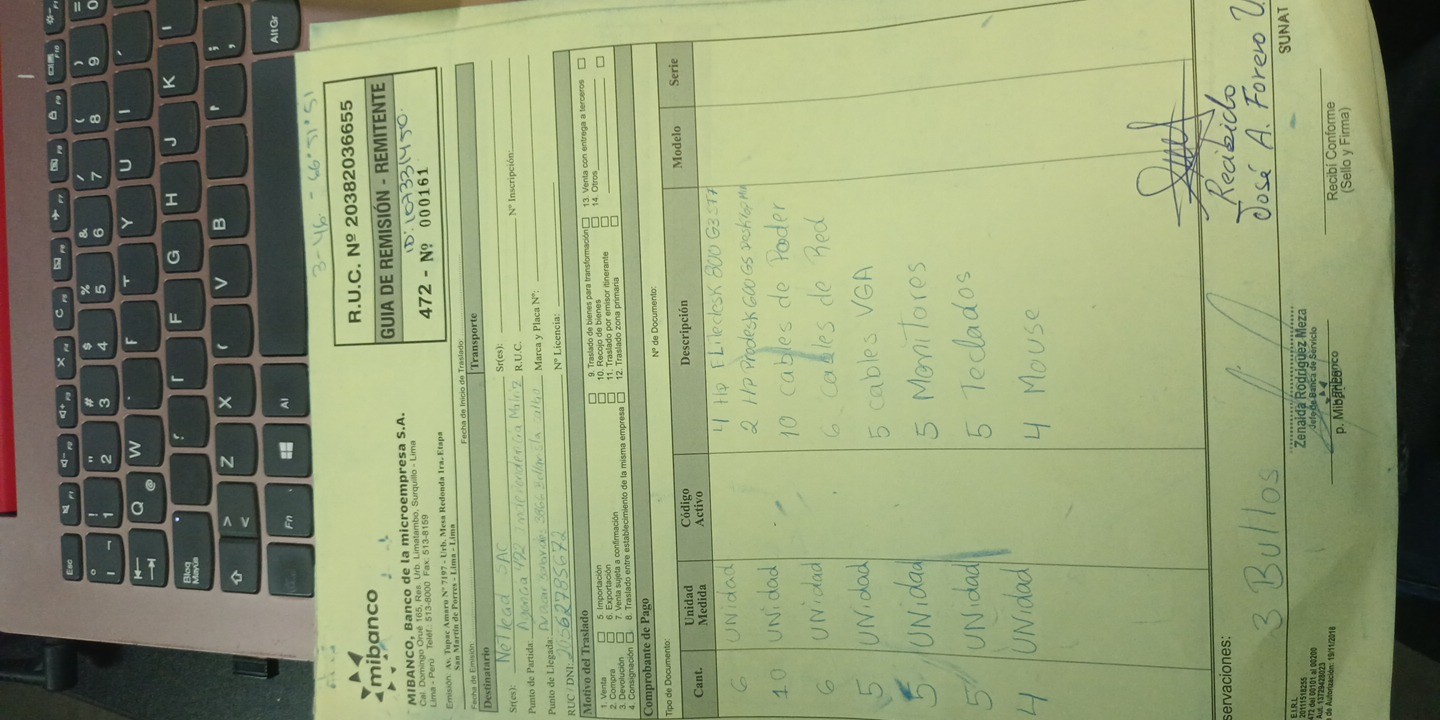 mibanco
MIBANCO, Banco de la microempresa S.A.
Cal. Domingo Orué 165, Res. Urb. Limatambo, Surquillo - Lima
Lima - Perú Teléf.: 513-8000 Fax: 513-8159
Emisión: Av. Tupac Amaru Nº 7197 - Urb. Mesa Redonda 1ra. Etapa
San Martín de Porres - Lima - Lima
R.U.C. Nº 20382036655
GUIA DE REMISIÓN - REMITENTE
472 - Nº 000161
Fecha de Emisión:
Fecha de Inicio de Traslado:
Destinatario
Transporte
Sr(es):
Sr(es):
Punto de Partida: Agencia 472 Independencia
R.U.C.
Nº Inscripción:
Punto de Llegada:
Marca y Placa Nº:
RUC / DNI: 20562785672
Nº Licencia:
Motivo del Traslado
1. Venta
2. Compra
3. Devolución
4. Consignación
5 Importación
6. Exportación
7. Venta sujeta a confirmación
8. Traslado entre establecimiento de la misma empresa
9. Traslado de bienes para transformación
10. Recojo de bienes
11. Traslado por emisor itinerante
12. Traslado zona primaria
13. Venta con entrega a terceros
14. Otros
Comprobante de Pago
Tipo de Documento:
Nº de Documento:
Cant. Unidad Medida Código Activo Descripción Modelo Serie
6 UNidad 4 Hp Elitedesk 800 G3
2 Hp Prodesk 600 G5
10 UNidad 10 cables de Poder
6 UNidad 6 cables de Red
5 UNidad 5 cables VGA
5 UNidad 5 Monitores
5 UNidad 5 Teclados
4 UNidad 4 Mouse
servaciones:
3 Bultos
Recibido
José A. Forero U.
SUNAT
Zenaida Rodriguez Meza
Jefe de Banca de Servicio
mibanco
p. Mibanco
Recibí Conforme
(Sello y Firma)
E.I.R.L.
20111518255
472 del 00101 al 00200
Aut. 13729428023
de Autorización: 19/11/2018
Esc
F1
F2
F3
F4
1
2
3
4
5
6
7
8
9
0
Q
W
R
T
Y
U
I
F
G
H
J
K
Z
X
V
B
Bloq
Mayús
Fn
Al
AltGr